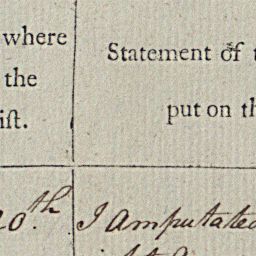 where
the
ist.
Statement of
put on th
20th.
I Amputated